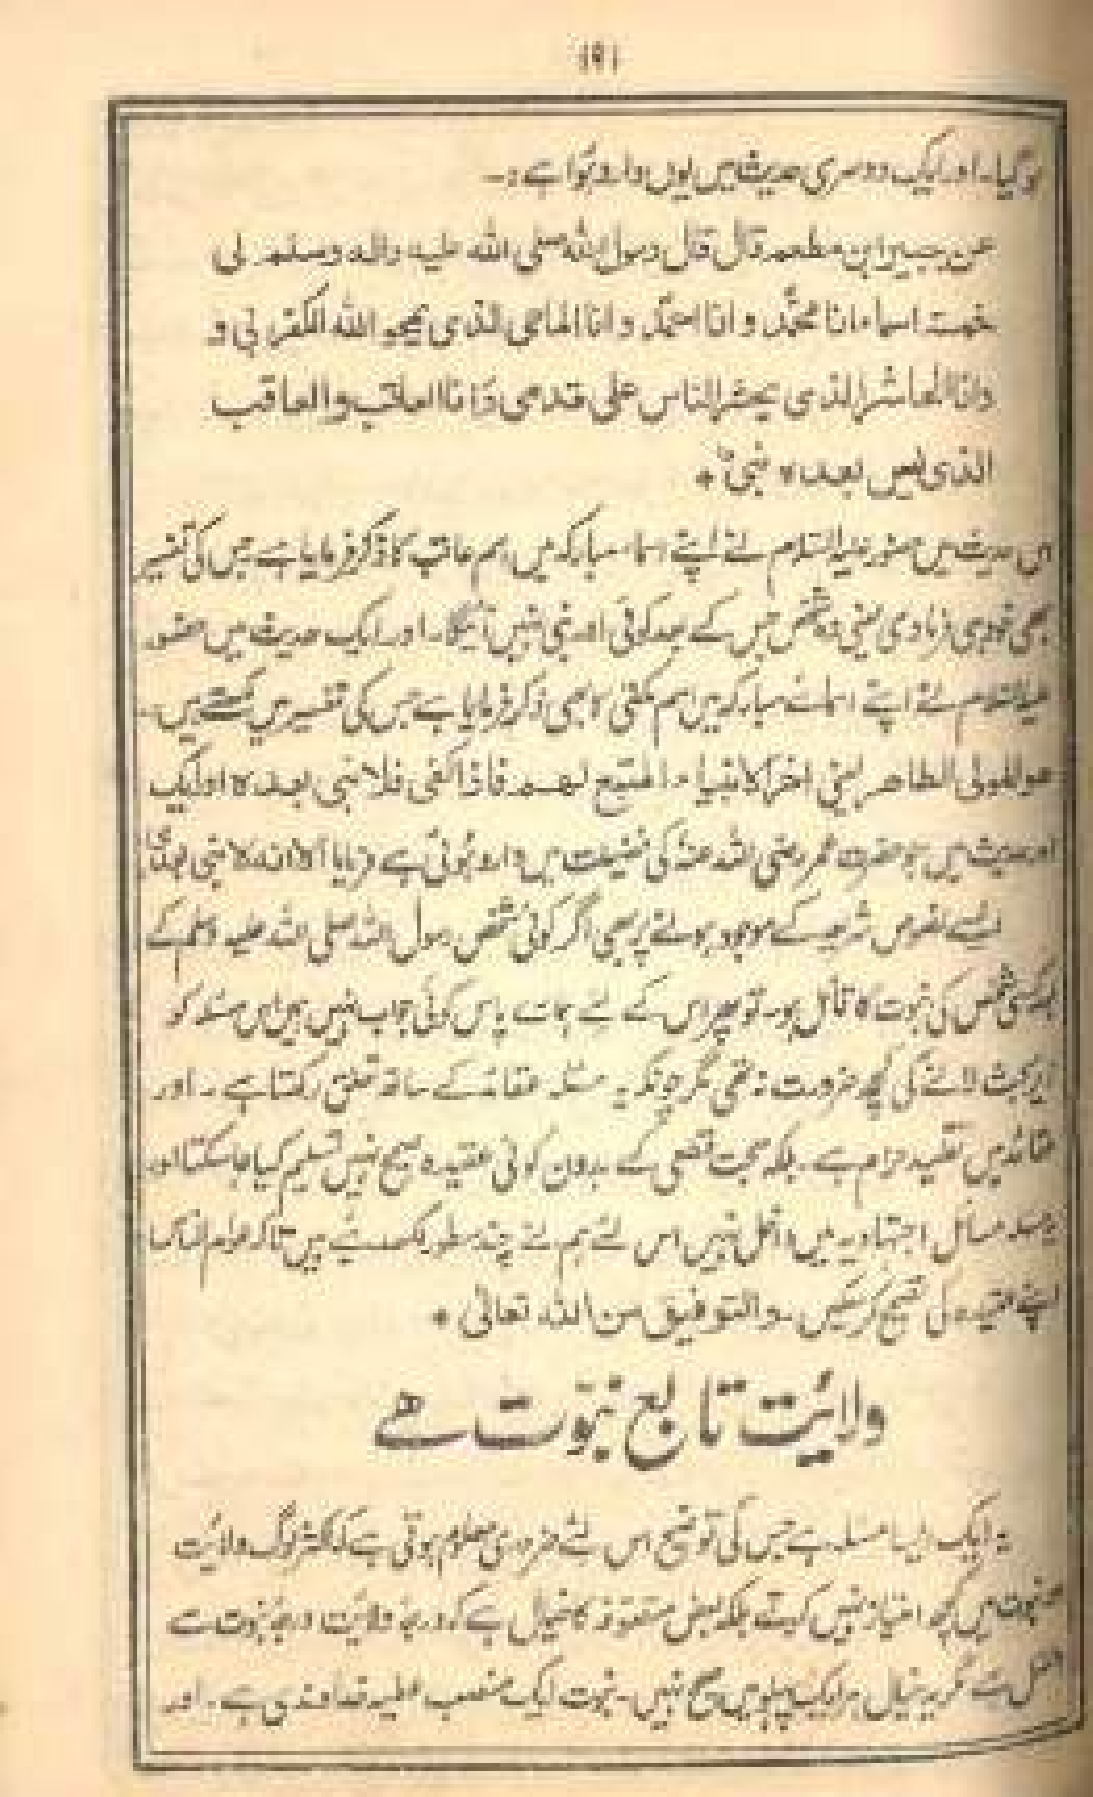 ۱۹۱
ہوگیا۔ اور ایک دوسری حدیث میں یوں وارد ہوا ہے :۔
عن جبیر ابن مطعم قال قال رسول الله صلی الله علیه واله وسلم لی
خمسة اسماء انا محمّد وانا احمّد وانا الماحی الذی یمحو الله الکفر بی و
وانا الحاشر الذی یحشر الناس علی قدمی وانا العاقب والعاقب
الذی لیس بعده نبیّ *
اس حدیث میں حضور علیہ السلام نے اپنے اسماء مبارکہ میں اسم عاقب کا ذکر فرمایا ہے جس کی تفسیر
بھی خود ہی فرما دی یعنی وہ شخص جس کے بعد کوئی اور نبی نہیں آئیگا۔ اور ایک حدیث میں حضور
علیہ السلام نے اپنے اسمائے مبارکہ میں اسم مقفی کا بھی ذکر فرمایا ہے جس کی تفسیر میں لکھتے ہیں۔
هو المولی الذاهب یعنی اخر الانبیاء المتبع لهم فاذا قفی فلا نبی بعده اور ایک
اور حدیث میں جو حضرت عمر رضی اللہ عنہ کی فضیلت میں وارد ہوئی ہے فرمایا الا انه لا نبی بعدی
ایسے نصوص شرعیہ کے موجود ہونے پر بھی اگر کوئی شخص رسول اللہ صلی اللہ علیہ وسلم کے
بعد کسی شخص کی نبوت کا قائل ہو۔ تو پھر اس کے لئے ہمارے پاس کوئی جواب نہیں ہمیں اس مسئلہ کو
زیر بحث لانے کی کچھ ضرورت نہ تھی مگر چونکہ یہ مسئلہ عقائد کے ساتھ تعلق رکھتا ہے۔ اور
عقائد میں تقلید حرام ہے۔ بلکہ حجت قطعی کے بدون کوئی عقیدہ صحیح نہیں تسلیم کیا جا سکتا اور
یہ مسئلہ مسائل اجتہادیہ میں داخل نہیں اس لئے ہم نے چند سطور لکھ دیئے ہیں تاکہ عوام الناس
اپنے عقیدہ کی تصحیح کر سکیں۔ والتوفیق من الله تعالیٰ *
ولائیت تابع نبوّت ہے
یہ ایک ایسا مسئلہ ہے جس کی توضیح اس لئے ضروری معلوم ہوتی ہے کہ اکثر لوگ ولائیت
اور نبوت میں کچھ امتیاز نہیں کرتے بلکہ بعض متصوفہ کا خیال ہے کہ درجۂ ولائیت درجۂ نبوت سے
افضل ہے مگر یہ خیال ہر ایک پہلو میں صحیح نہیں۔ نبوت ایک منصب عطیہ خداوندی ہے۔ اور